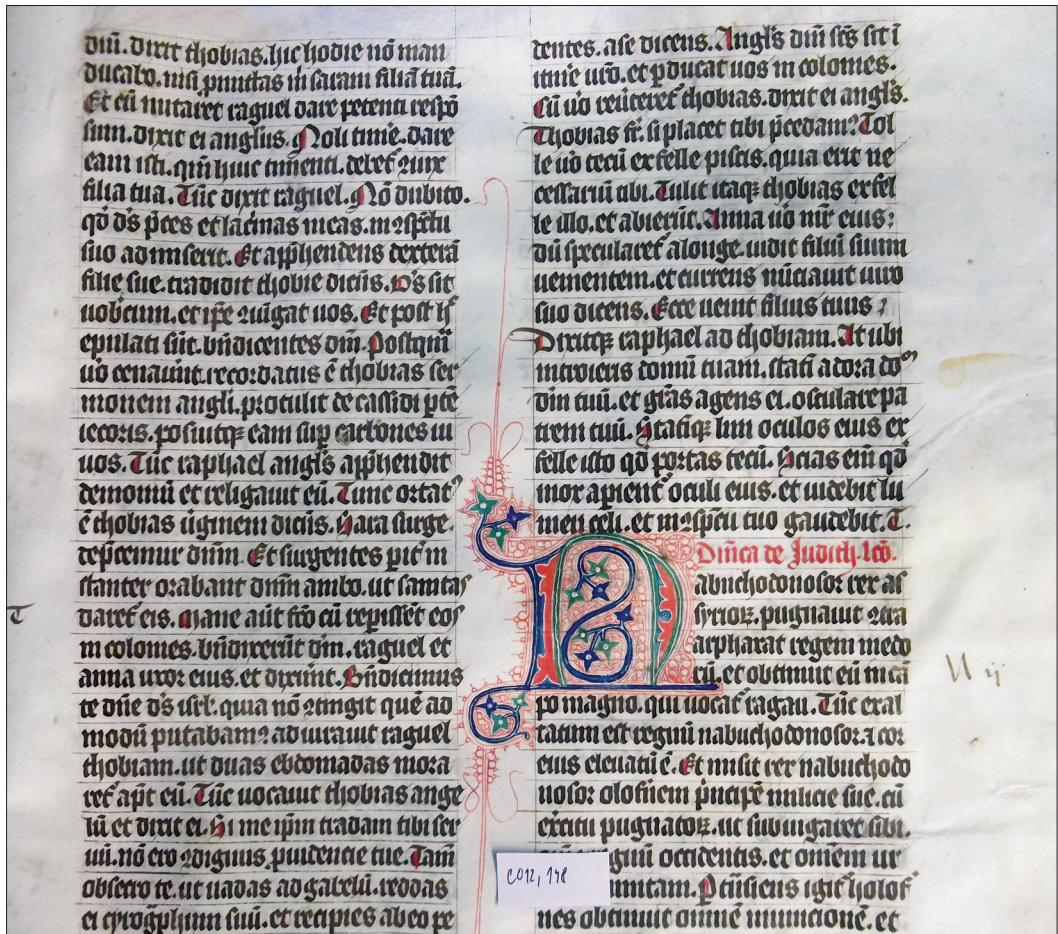 diū. dixit thobias. hic hodie nō man
ducabo. nisi ꝓmittas m̄ saram filiā tuā.
Et cū nutaret raguel dare petenti respō
sum. dixit ei angl̄us. Noli time͛. dare
eam isti. qm̄ huic timenti. debet͛ ꝯiux
filia tua. Tūc dixit raguel. Nō dubito.
qd̄ ds̄ p̄ces et lac͛mas meas. in ꝯsp̄ctu
suo admiserit. Et app̄hendens dexterā
filie sue. tradidit thobie dicēs. Ds̄ sit
uobcum. et ip̄e ꝯiūgat uos. Et post h͛
epulati sūt. bn̄dicentes dm̄. Postqm̄
u͛o cenauūt. recordatus ē thobias ser
monem angl̄i. protulit de cassidi p̄te
iecoris. posuitqꝫ eam sup͛ carbones ui
uos. Tūc raphael angl̄s app̄hendit
demoniū et religauit eū. Tunc ortatꝰ
ē thobias ūginem dicēs. Sara surge.
dep̄cemur dnm̄. Et surgentes pit͛ in
stanter orabant dnm̄ ambo. ut sanitas
daret͛ eis. Mane aūt fc̄o cū rep͛issēt eos
in colomes. bn̄dixerūt dm̄. raguel et
anna uxor eius. et dixert̄. Bn̄dicimus
te dn̄e ds̄ isrl̄. quia nō ꝯtingit quē ad
modū putabamꝰ adiurauit raguel
thobiam. ut duas ebdomadas mora
ret͛ apt̄ eū. Tūc uocauit thobias ange
lū et dixit ei. Si me ip̄m tradam tibi ser
uū. nō ero ꝯdignus. ꝓuidentie tue. Tam̄
obsecro te. ut uadas ad gabelū. reddas
ei cyrogp̄hum suū. et recipies ab eo pe
T
dentes. a se dicens. Angl̄s dm̄ sc̄s sit ī
itin͛e ur̄o. et pducat uos in colomes.
Cū u͛o reūteret͛ thobias. dixit ei angl̄s.
Thobias fr̄. si placet tibi p̄cedamꝰ Tol
le u͛o tecū ex felle piscis. quia erit ne
cessariū tibi. Tulit itaqꝫ thobias ex fel
le illo. et abierūt. Anna u͛o mr̄ eius.
dū specularet͛ alonge. uidit filiū suum
uenientem. et currens nūciauit uiro
suo dicens. Ecce uenit filius tuus.
Dixitqꝫ raphael ad thobiam. At ubi
introieris domū tuam. statī adora do
m̄ dm̄ tuū. et grās agens ei. osculare pa
trem tuū. Statīqꝫ lini oculos eius ex
felle isto qd̄ portas tecū. Scias em̄ qd̄
mox apient͛ oculi eius. et uidebit lu
men celi. et in ꝯsp̄cu tuo gaudebit. T.
Dnīca de Judich. lcō.
Nabuchodonosor rex as
syrioꝝ. pugnauit ꝯtra
arpharat regem medo
rū. et obtinuit eū in cā
po magno. qui uocat͛ ragau. Tūc exal
tatum est regnū nabuchodonosor. ⁊ cor
eius eleuatū ē. Et misit rex nabuchodo
nosor olofn͛em p̄ncipē milicie sue. cū
exc̄itu pugnatoꝝ. ut subiugaret sibi.
gnū occidentis. et omēm ur
nitam. Pc̄ūsiens igit͛ holof͛
nes obtinuit omnē municionē. et
N ij
CO12, 148